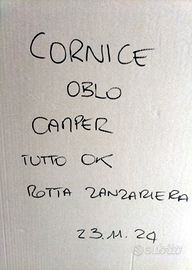 CORNICE
OBLO
CAMPER
TUTTO OK
ROTTA ZANZARIERA
23.11.24
subito